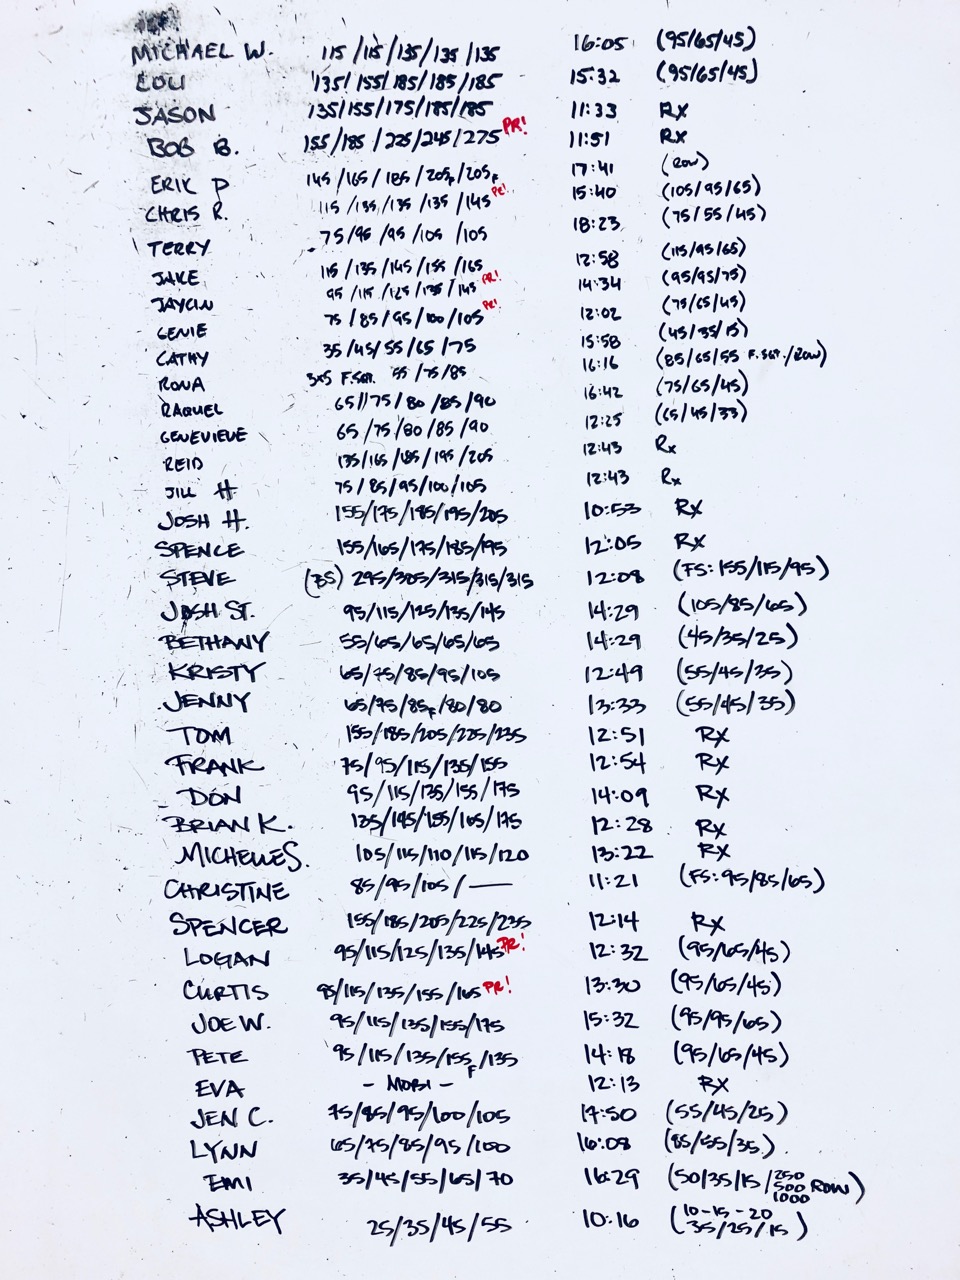 MICHAEL W. 115/115/135/135/135 16:05 (95/65/45)
LOU 135/155/185/185/185 15:32 (95/65/45)
JASON 135/155/175/185/185 11:33 RX
BOB B. 155/185/225/245/275 PR! 11:51 RX
ERIK P 145/165/185/205F/205F 17:41 (ROW)
CHRIS R. 115/135/135/135/145 PR! 15:40 (105/95/65)
TERRY 75/95/95/105/105 18:23 (75/55/45)
JAKE 115/135/145/155/165 12:58 (115/95/65)
JAYCIN 95/115/125/135/145 PR! 14:34 (95/95/75)
GENIE 75/85/95/100/105 PR! 12:02 (75/65/45)
CATHY 35/45/55/65/75 15:58 (45/35/15)
RONA 3x5 F.SQT. 55/75/85 16:16 (85/65/55 F.SQT./ROW)
RAQUEL 65//75/80/85/90 16:42 (75/65/45)
GENEVIEVE 65/75/80/85/90 12:25 (65/45/33)
REID 135/165/185/195/205 12:43 Rx
JILL H 75/85/95/100/105 12:43 Rx
JOSH H. 155/175/185/195/205 10:53 RX
SPENCE 155/165/175/185/195 12:05 RX
STEVE (BS) 295/305/315/315/315 12:08 (FS: 155/115/95)
JOSH ST. 95/115/125/135/145 14:29 (105/85/65)
BETHANY 55/65/65/65/65 14:29 (45/35/25)
KRISTY 65/75/85/95/105 12:49 (55/45/35)
JENNY 65/75/85F/80/80 13:33 (55/45/35)
TOM 155/185/205/225/235 12:51 RX
FRANK 75/95/115/135/155 12:54 RX
DON 95/115/135/155/175 14:09 RX
BRIAN K. 135/145/155/165/175 12:28 RX
MICHELLE S. 105/115/110/115/120 13:22 RX
CHRISTINE 85/95/105/— 11:21 (FS: 95/85/65)
SPENCER 155/185/205/225/235 12:14 RX
LOGAN 95/115/125/135/145 PR! 12:32 (95/65/45)
CURTIS 95/115/135/155/165 PR! 13:30 (95/65/45)
JOE W. 95/115/135/155/175 15:32 (95/95/65)
PETE 95/115/135/155F/135 14:18 (95/65/45)
EVA - MOBI - 12:13 RX
JEN C. 75/85/95/100/105 17:50 (55/45/25)
LYNN 65/75/85/95/100 16:08 (85/55/35)
EMI 35/45/55/65/70 16:29 (50/35/15/250 500 1000 ROW)
ASHLEY 25/35/45/55 10:16 (10-15-20 35/25/15)